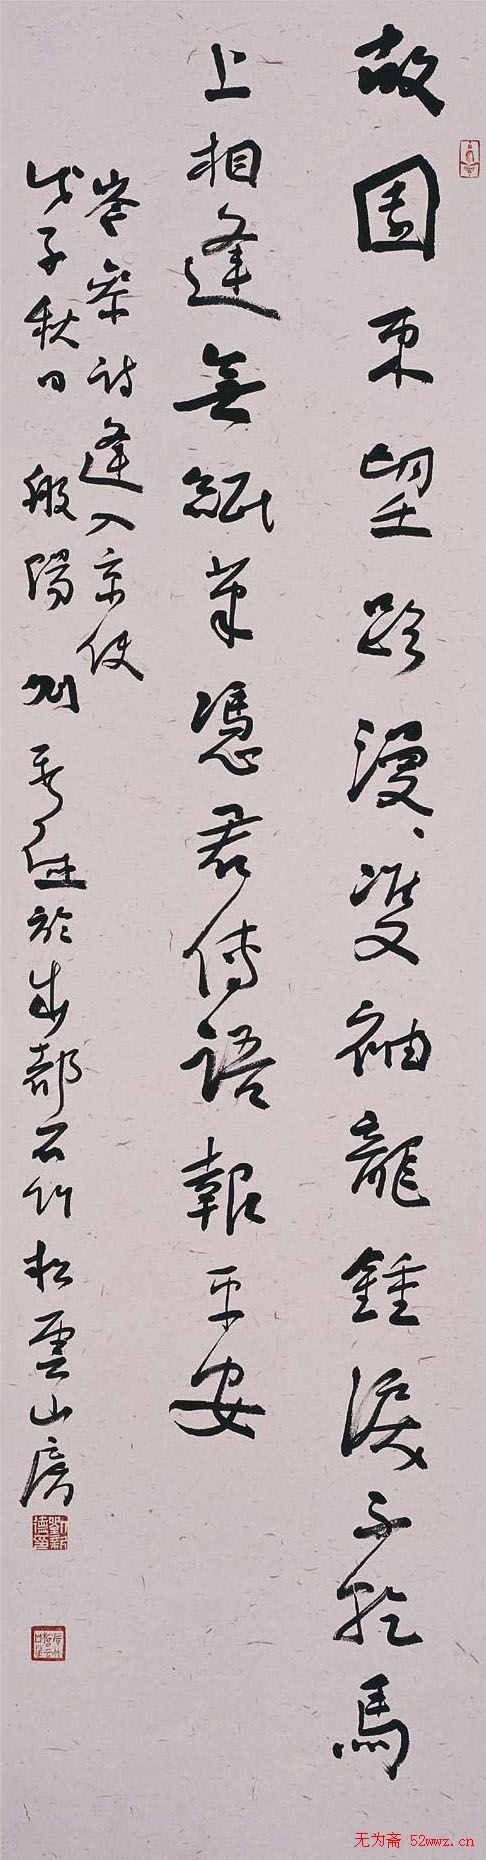 故園東望路漫、雙袖龍鍾淚不乾馬
上相逢無紙筆憑君傳語報平安
岑參詩逢入京使
戊子秋日般陽劉新德於成都石竹松雲山房
劉新德
无为斋 52wwz.cn